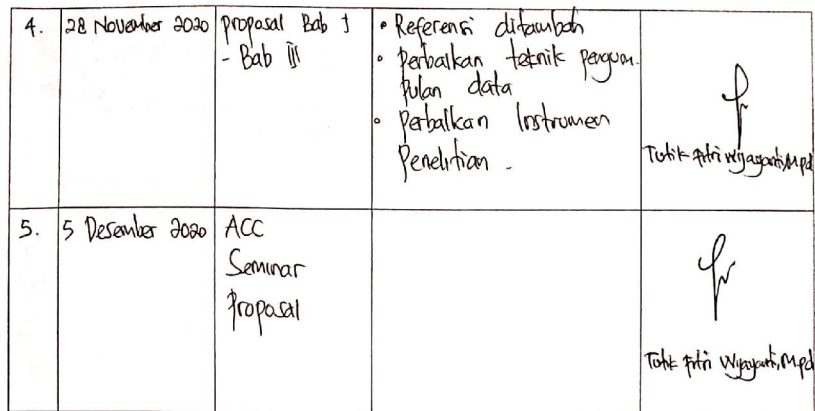 4.
28 November 2020
proposal Bab I
- Bab III
• Referensi ditambah
• Perbaikan teknik pengum-
pulan data
• Perbaikan Instrumen
Penelitian -
Tutik Fitri Wijayanti, Mpd
5.
5 Desember 2020
ACC
Seminar
Proposal
Tutik Fitri Wijayanti, Mpd